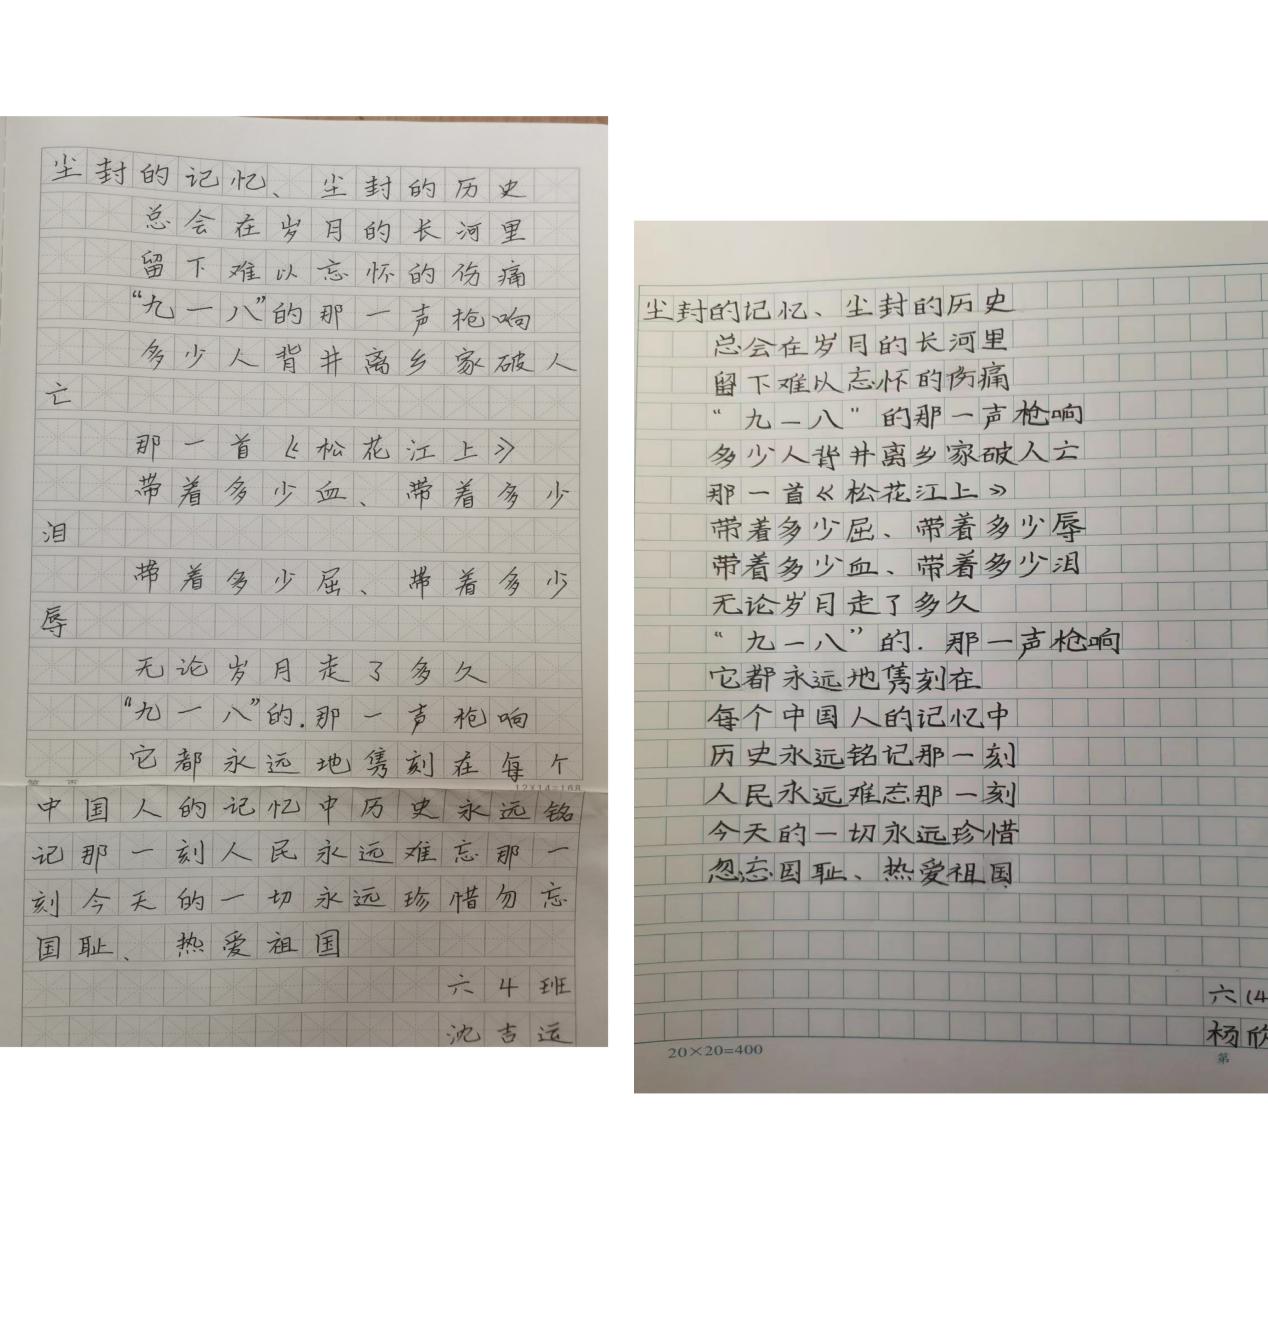 尘封的记忆、尘封的历史
总会在岁月的长河里
留下难以忘怀的伤痛
“九一八”的那一声枪响
多少人背井离乡家破人
亡
那一首《松花江上》
带着多少血、带着多少
泪
带着多少屈、带着多少
辱
无论岁月走了多久
“九一八”的.那一声枪响
它都永远地隽刻在每个
12×14=168
中国人的记忆中历史永远铭
记那一刻人民永远难忘那一
刻今天的一切永远珍惜勿忘
国耻、热爱祖国
六4班
沈吉运
尘封的记忆、尘封的历史
总会在岁月的长河里
留下难以忘怀的伤痛
“九一八”的那一声枪响
多少人背井离乡家破人亡
那一首《松花江上》
带着多少屈、带着多少辱
带着多少血、带着多少泪
无论岁月走了多久
“九一八”的.那一声枪响
它都永远地隽刻在
每个中国人的记忆中
历史永远铭记那一刻
人民永远难忘那一刻
今天的一切永远珍惜
忽忘国耻、热爱祖国
六(4
杨欣
20×20=400
第